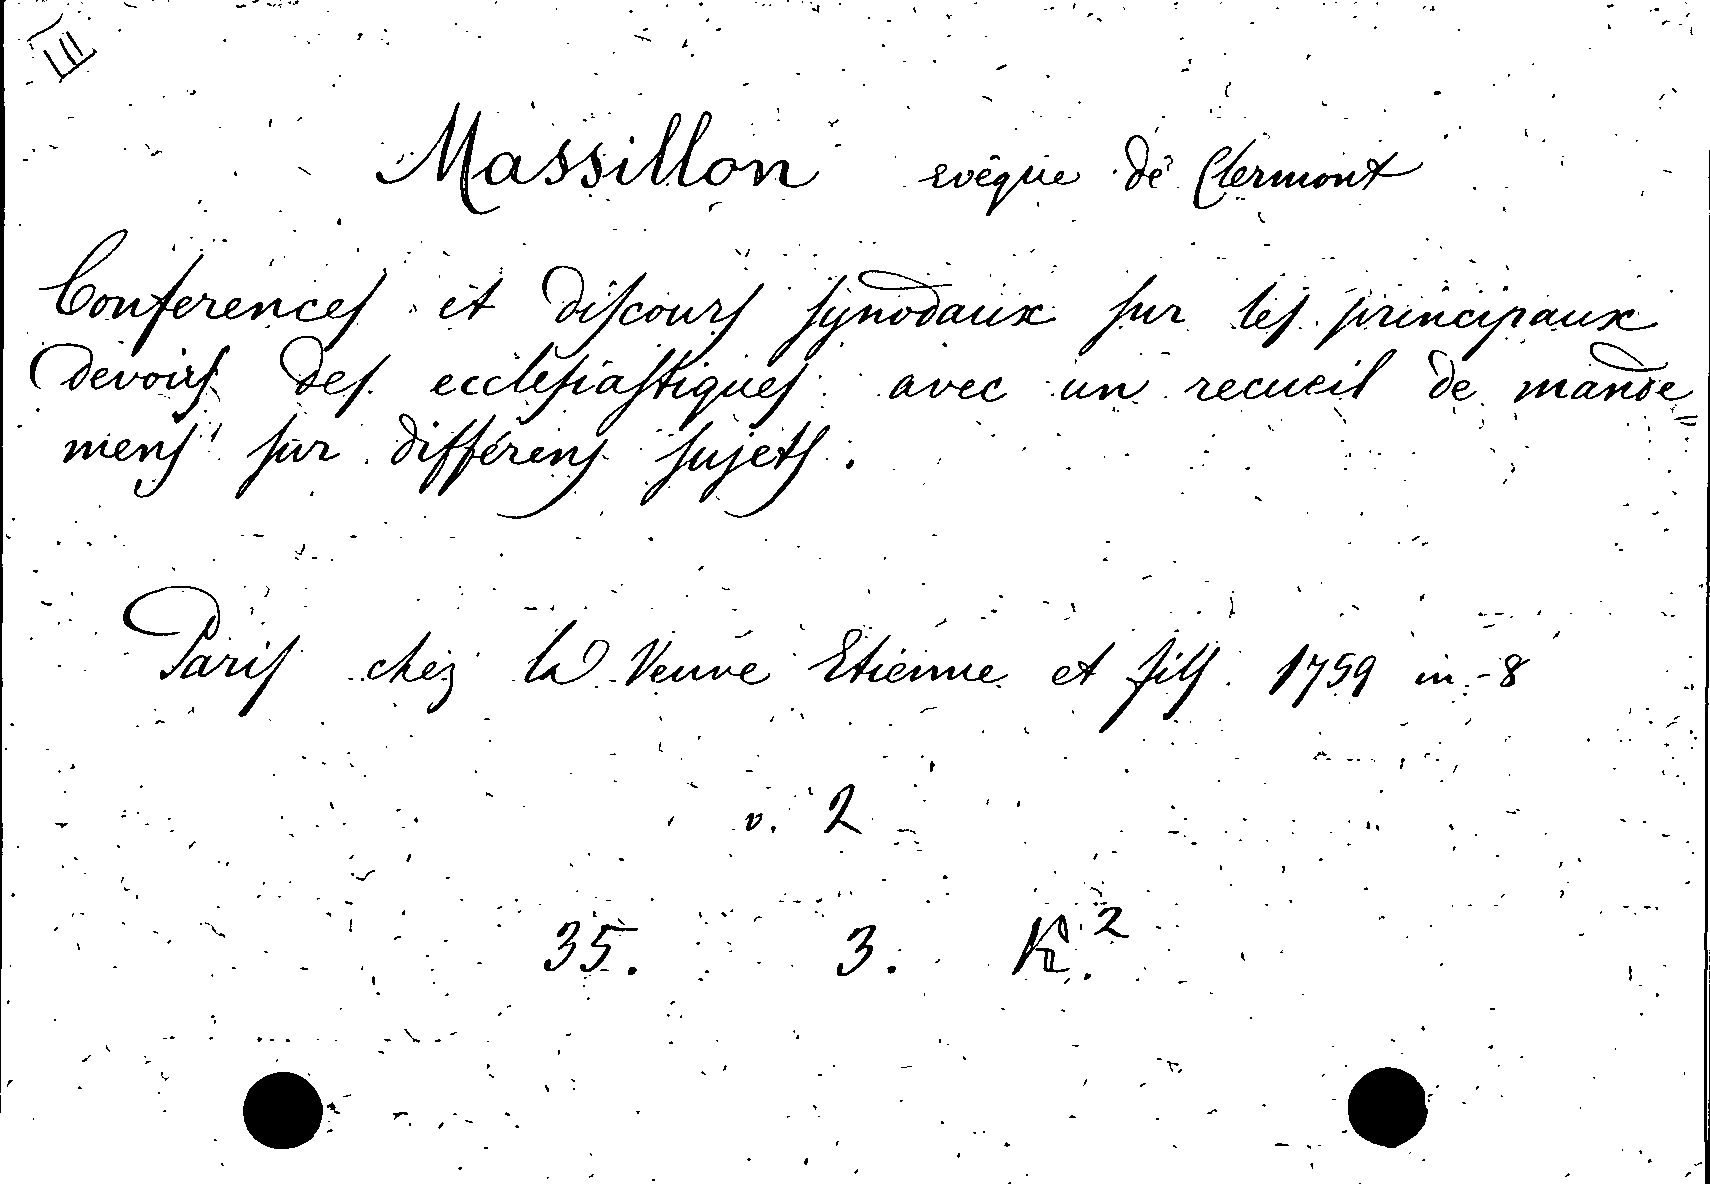 III
Massillon evêque de Clermont
Conferences et discours synodaux sur les principaux
devoirs des ecclesiastiques avec un recueil de mande=
mens sur différens sujets.
Paris chez la Veuve Etienne et fils 1759 in-8
v. 2
35. 3. K.²